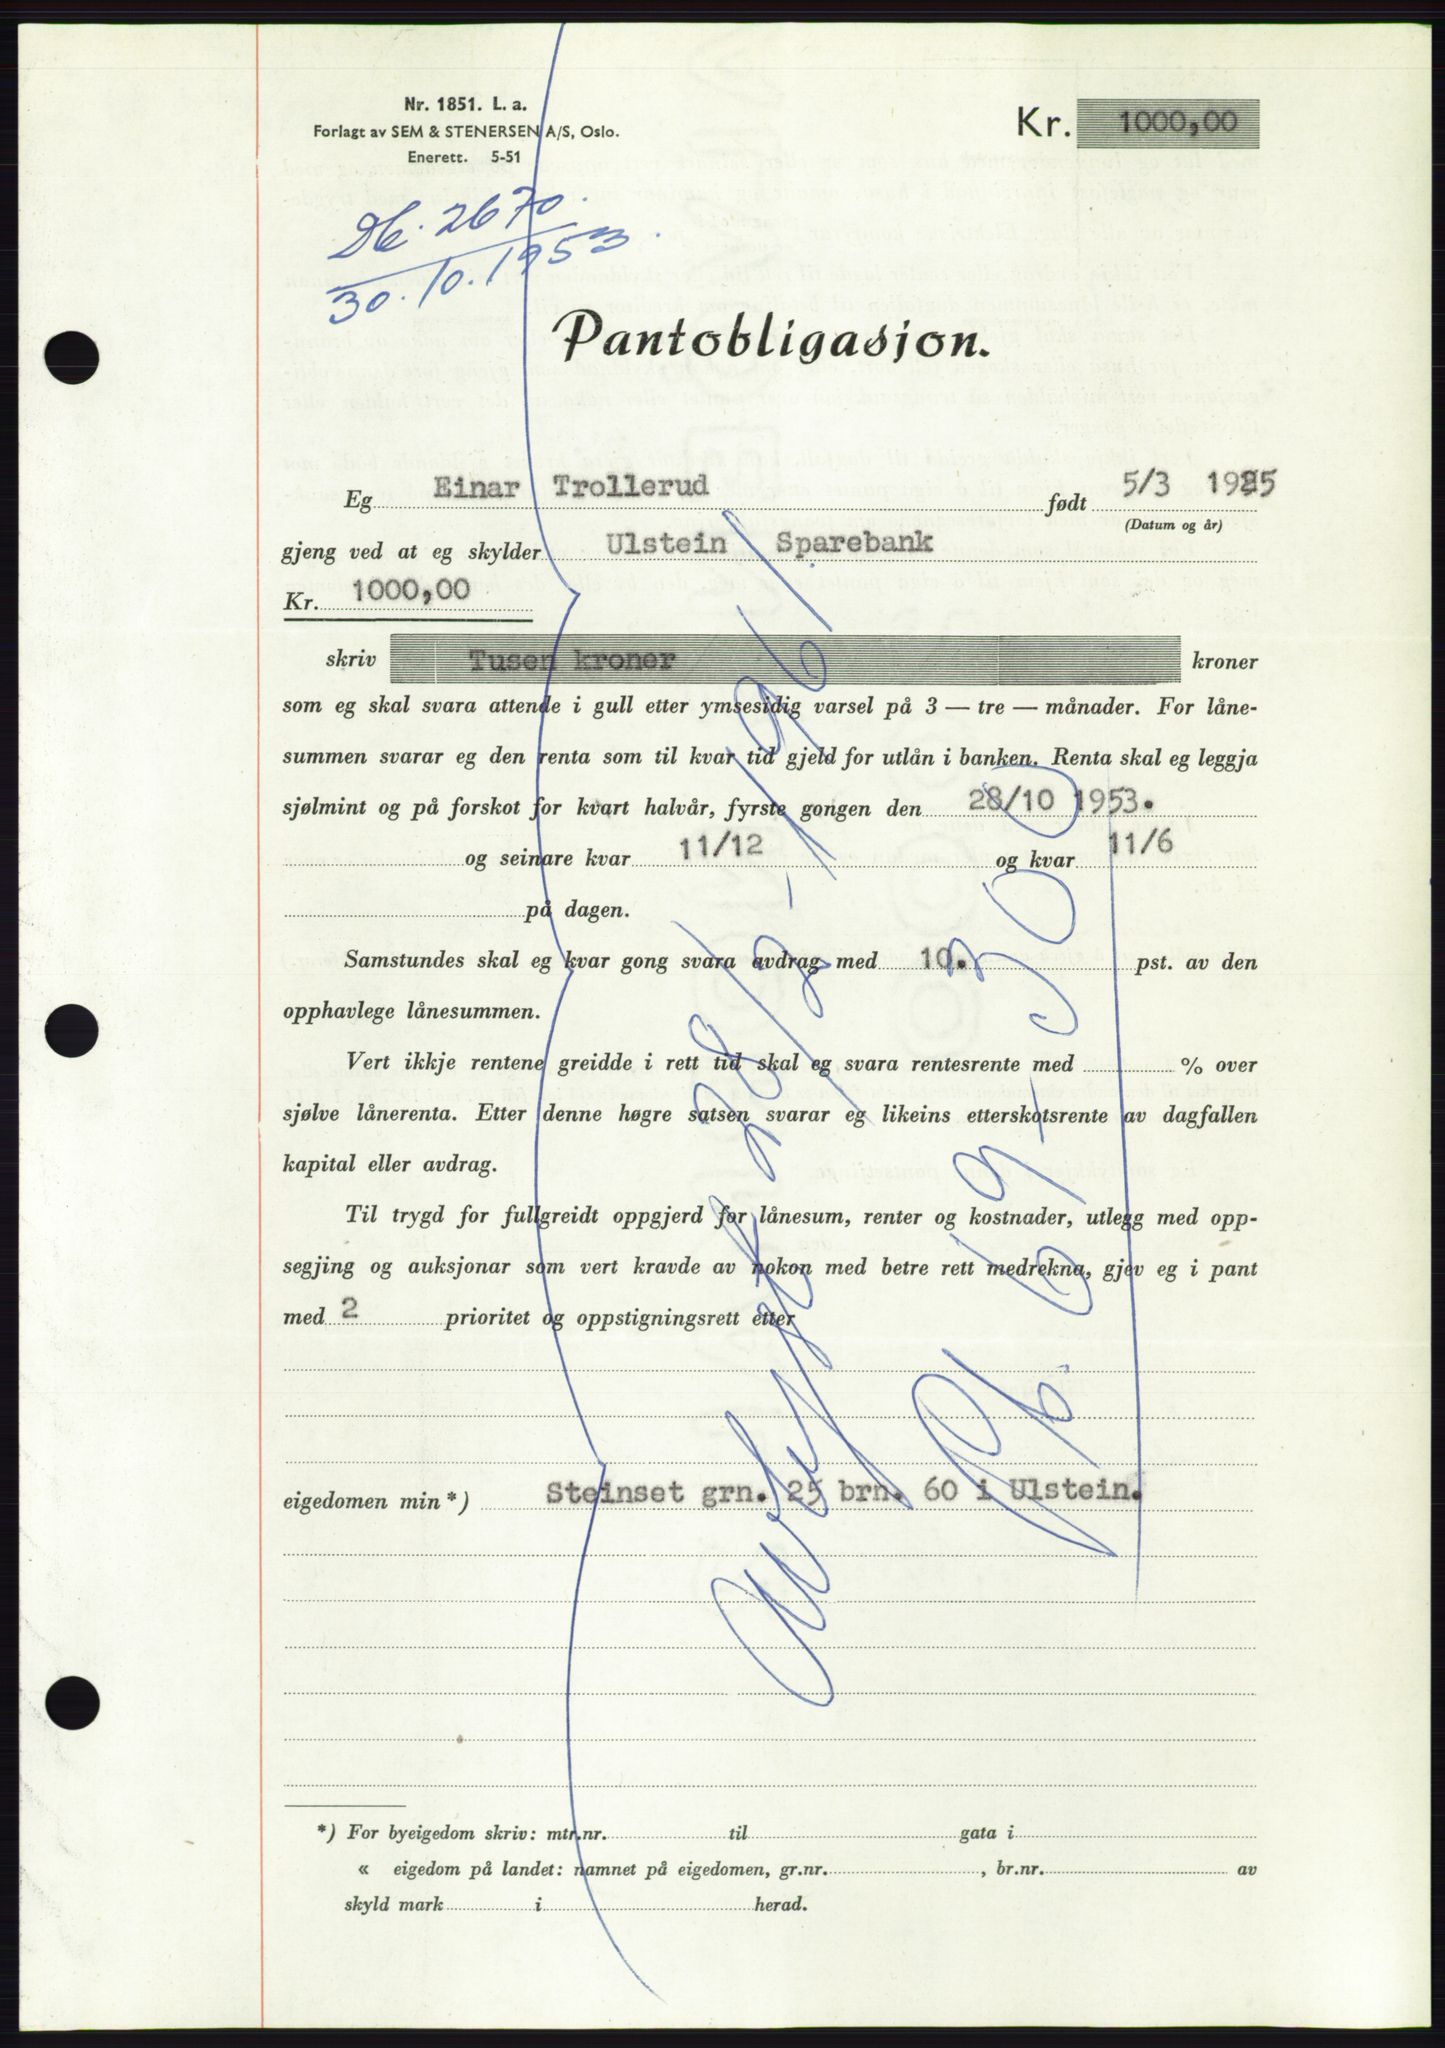 Nr. 1851. L. a.
Forlagt av SEM & STENERSEN A/S, Oslo.
Enerett. 5-51
Kr. 1000,00
Db. 2670.
30.10.1953.
Pantobligasjon.
Eg Einar Trollerud født 5/3 1925
(Datum og år)
gjeng ved at eg skylder Ulstein Sparebank
Kr. 1000,00
skriv Tusen kroner kroner
som eg skal svara attende i gull etter ymsesidig varsel på 3 — tre — månader. For låne-
summen svarar eg den renta som til kvar tid gjeld for utlån i banken. Renta skal eg leggja
sjølmint og på forskot for kvart halvår, fyrste gongen den 28/10 1953.
og seinare kvar 11/12 og kvar 11/6
på dagen.
Samstundes skal eg kvar gong svara avdrag med 10. pst. av den
opphavlege lånesummen.
Vert ikkje rentene greidde i rett tid skal eg svara rentesrente med % over
sjølve lånerenta. Etter denne høgre satsen svarar eg likeins etterskotsrente av dagfallen
kapital eller avdrag.
Til trygd for fullgreidt oppgjerd for lånesum, renter og kostnader, utlegg med opp-
segjing og auksjonar som vert kravde av nokon med betre rett medrekna, gjev eg i pant
med 2 prioritet og oppstigningsrett etter
eigedomen min *) Steinset grn. 25 brn. 60 i Ulstein.
Avlyst 28/2-1961
Pb. 69, 30
*) For byeigedom skriv: mtr.nr. til gata i
« eigedom på landet: namnet på eigedomen, gr.nr. , br.nr. av
skyld mark i herad.